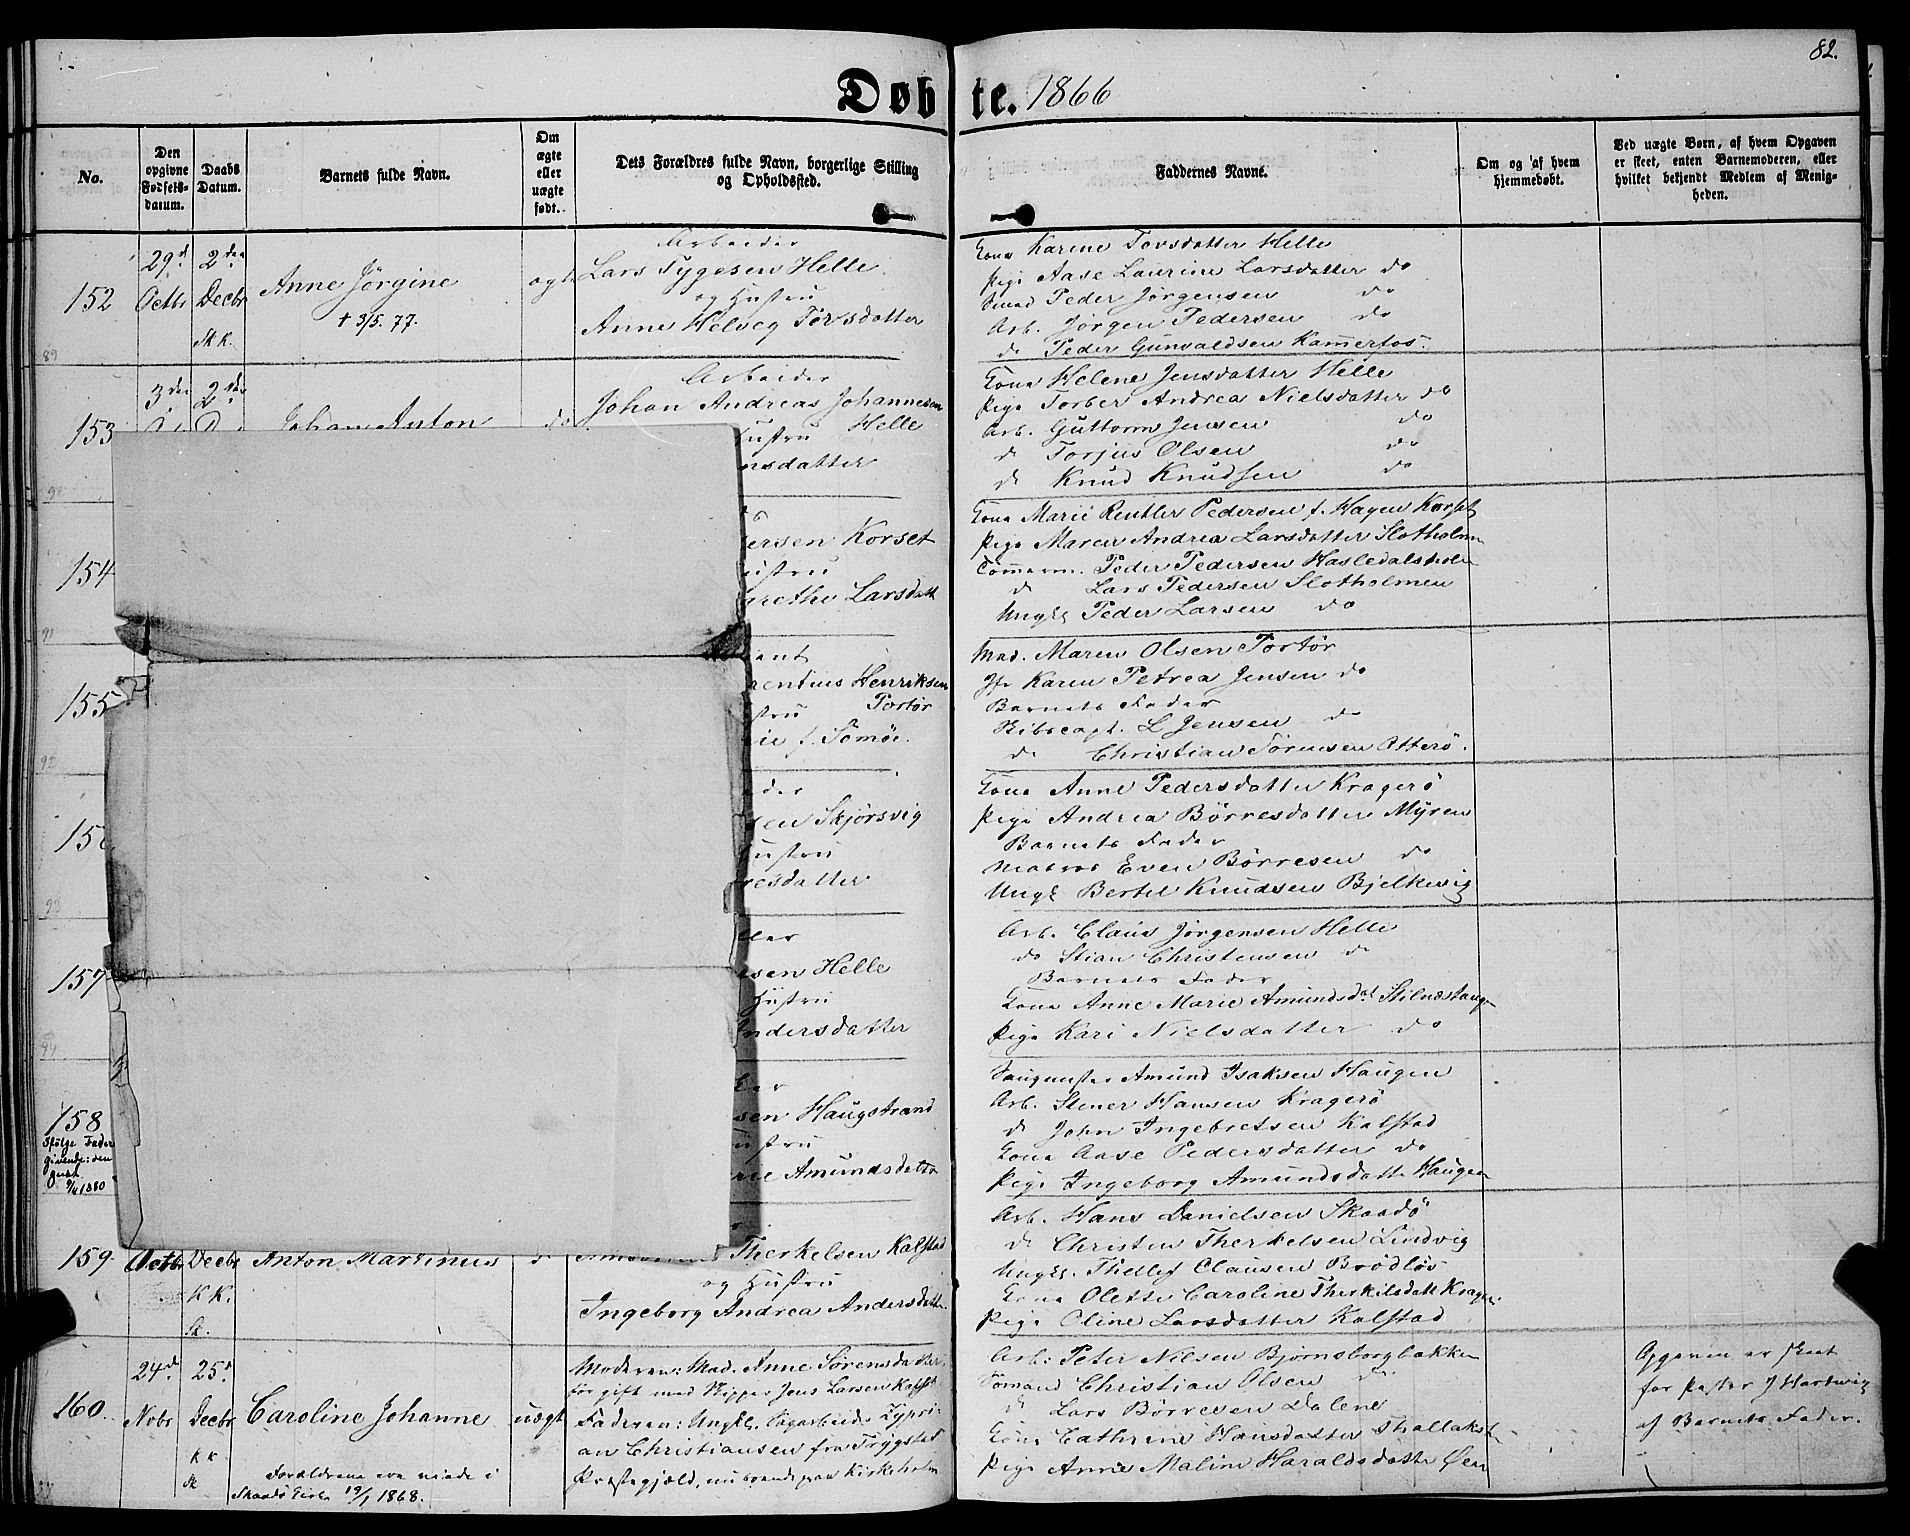 82.
Døbte. 1866
No.
Den opgivne Fødsels-datum.
Daabs Datum.
Barnets fulde Navn.
Om ægte eller uægte født.
Dets Forældres fulde Navn, borgerlige Stilling og Opholdssted.
Faddernes Navne.
Om og af hvem hjemmedøbt.
Ved uægte Børn, af hvem Opgaven er skeet, enten Barnemoderen, eller hvilket bekjendt Medlem af Menigheden.
152
29d Octbr
2den Decbr
Sk K.
Anne Jørgine
† 3/5. 77.
ægt
Arbeider
Lars Tygesen Helle
og Hustru
Anne Helveg Torsdatter
Kona Karine Torsdatter Helle
Pige Aase Laurine Larsdatter do
Smed Peder Jørgensen do
Arb. Jørgen Pedersen do
do Peder Gunvaldsen Kamerfos.
89
153
3die
2den
Johan Anton
do
Arbeider
Johan Andreas Johannesen
Hustru Helle
nsdatter
Kona Helene Jensdatter Helle
Pige Torber Andrea Nielsdatter do
Arb. Guttorm Jensen do
do Torjus Olsen do
do Knud Knudsen do
90
154
ersen Korset
ustru
grethe Larsdatt
Kona Marie Rentler Pedersen f. Hagen Korset
Pige Maren Andrea Larsdatter Slotholmen
Tømmerm. Peder Pedersen Hasledalsholm
do Lars Pedersen Slotholmen
Ungkl Peder Larsen do
91
155
ant
rentius Henriksen
stru Portør
ie f. Somöe.
Mad. Maren Olsen Portør
Jfr Karen Petrea Jensen do
Barnets Fader
Skibscapt. L Jensen do
do Christian Sørensen Otterø.
92
15
der
sen Skjørsvig
Hustru
resdatter
Kona Anne Pedersdatter Kragerö
Pige Andrea Börresdatter Myren
Barnets Fader
Matros Even Börresen do
Ungk Bertel Knudsen Bjelkevig
93
157
sen Helle
Hustru
Andersdatter
Arb. Claus Jørgensen Helle
do Stian Christensen do
Barnets Fader
Kona Anne Marie Amundsdt Stilnestangen
Pige Kari Nielsdatter do
94
158
ifølge Fader
0/4 1880
sen Haugstrand
ustru
rie Amundsdatter
Saugmester Amund Isaksen Haugen
Arb. Stener Hansen Kragerö
do John Ingebretsen Kalstad
Kona Aase Pedersdatter do
Pige Ingeborg Amundsdatter Haugen
159
Octbr
Decbr
KK.
Sk.
Anton Martinus
Therkelsen Kalstad
og Hustru
Ingeborg Andrea Andersdatter
Arb. Hans Danielsen Skaadö
do Christen Therkelsen Lindvig
Ungkl. Thellef Clausen Brødløs
Kona Olette Caroline Therkilsdatt Kragerø
Pige Oline Larsdatter Kalstad
160.
24d Nobr
25d Decbr
KK
Sk
Caroline Johanne
Forældrene ere viede i
Skaadö Kirke 19/1 1868.
uægt
Moderen: Mad. Anne Sørensdatter,
før gift med Skipper Jens Larsen
Faderen: Ungkl. Sagarbeider Zypri-
an Christiansen fra Trygstad
Præstegjæld, nuboende paa Kirkeholm
Arb: Peter Nilsen Bjørnsborgbakken
Sømand Christian Olsen do
do Lars Börresen Dalene
Kona Cathrine Hansdatter
Pige Annie Maline Haraldsdatter Øen
Opgaven er skeet
for Pastor J Hartwig
af Barnets Fader.